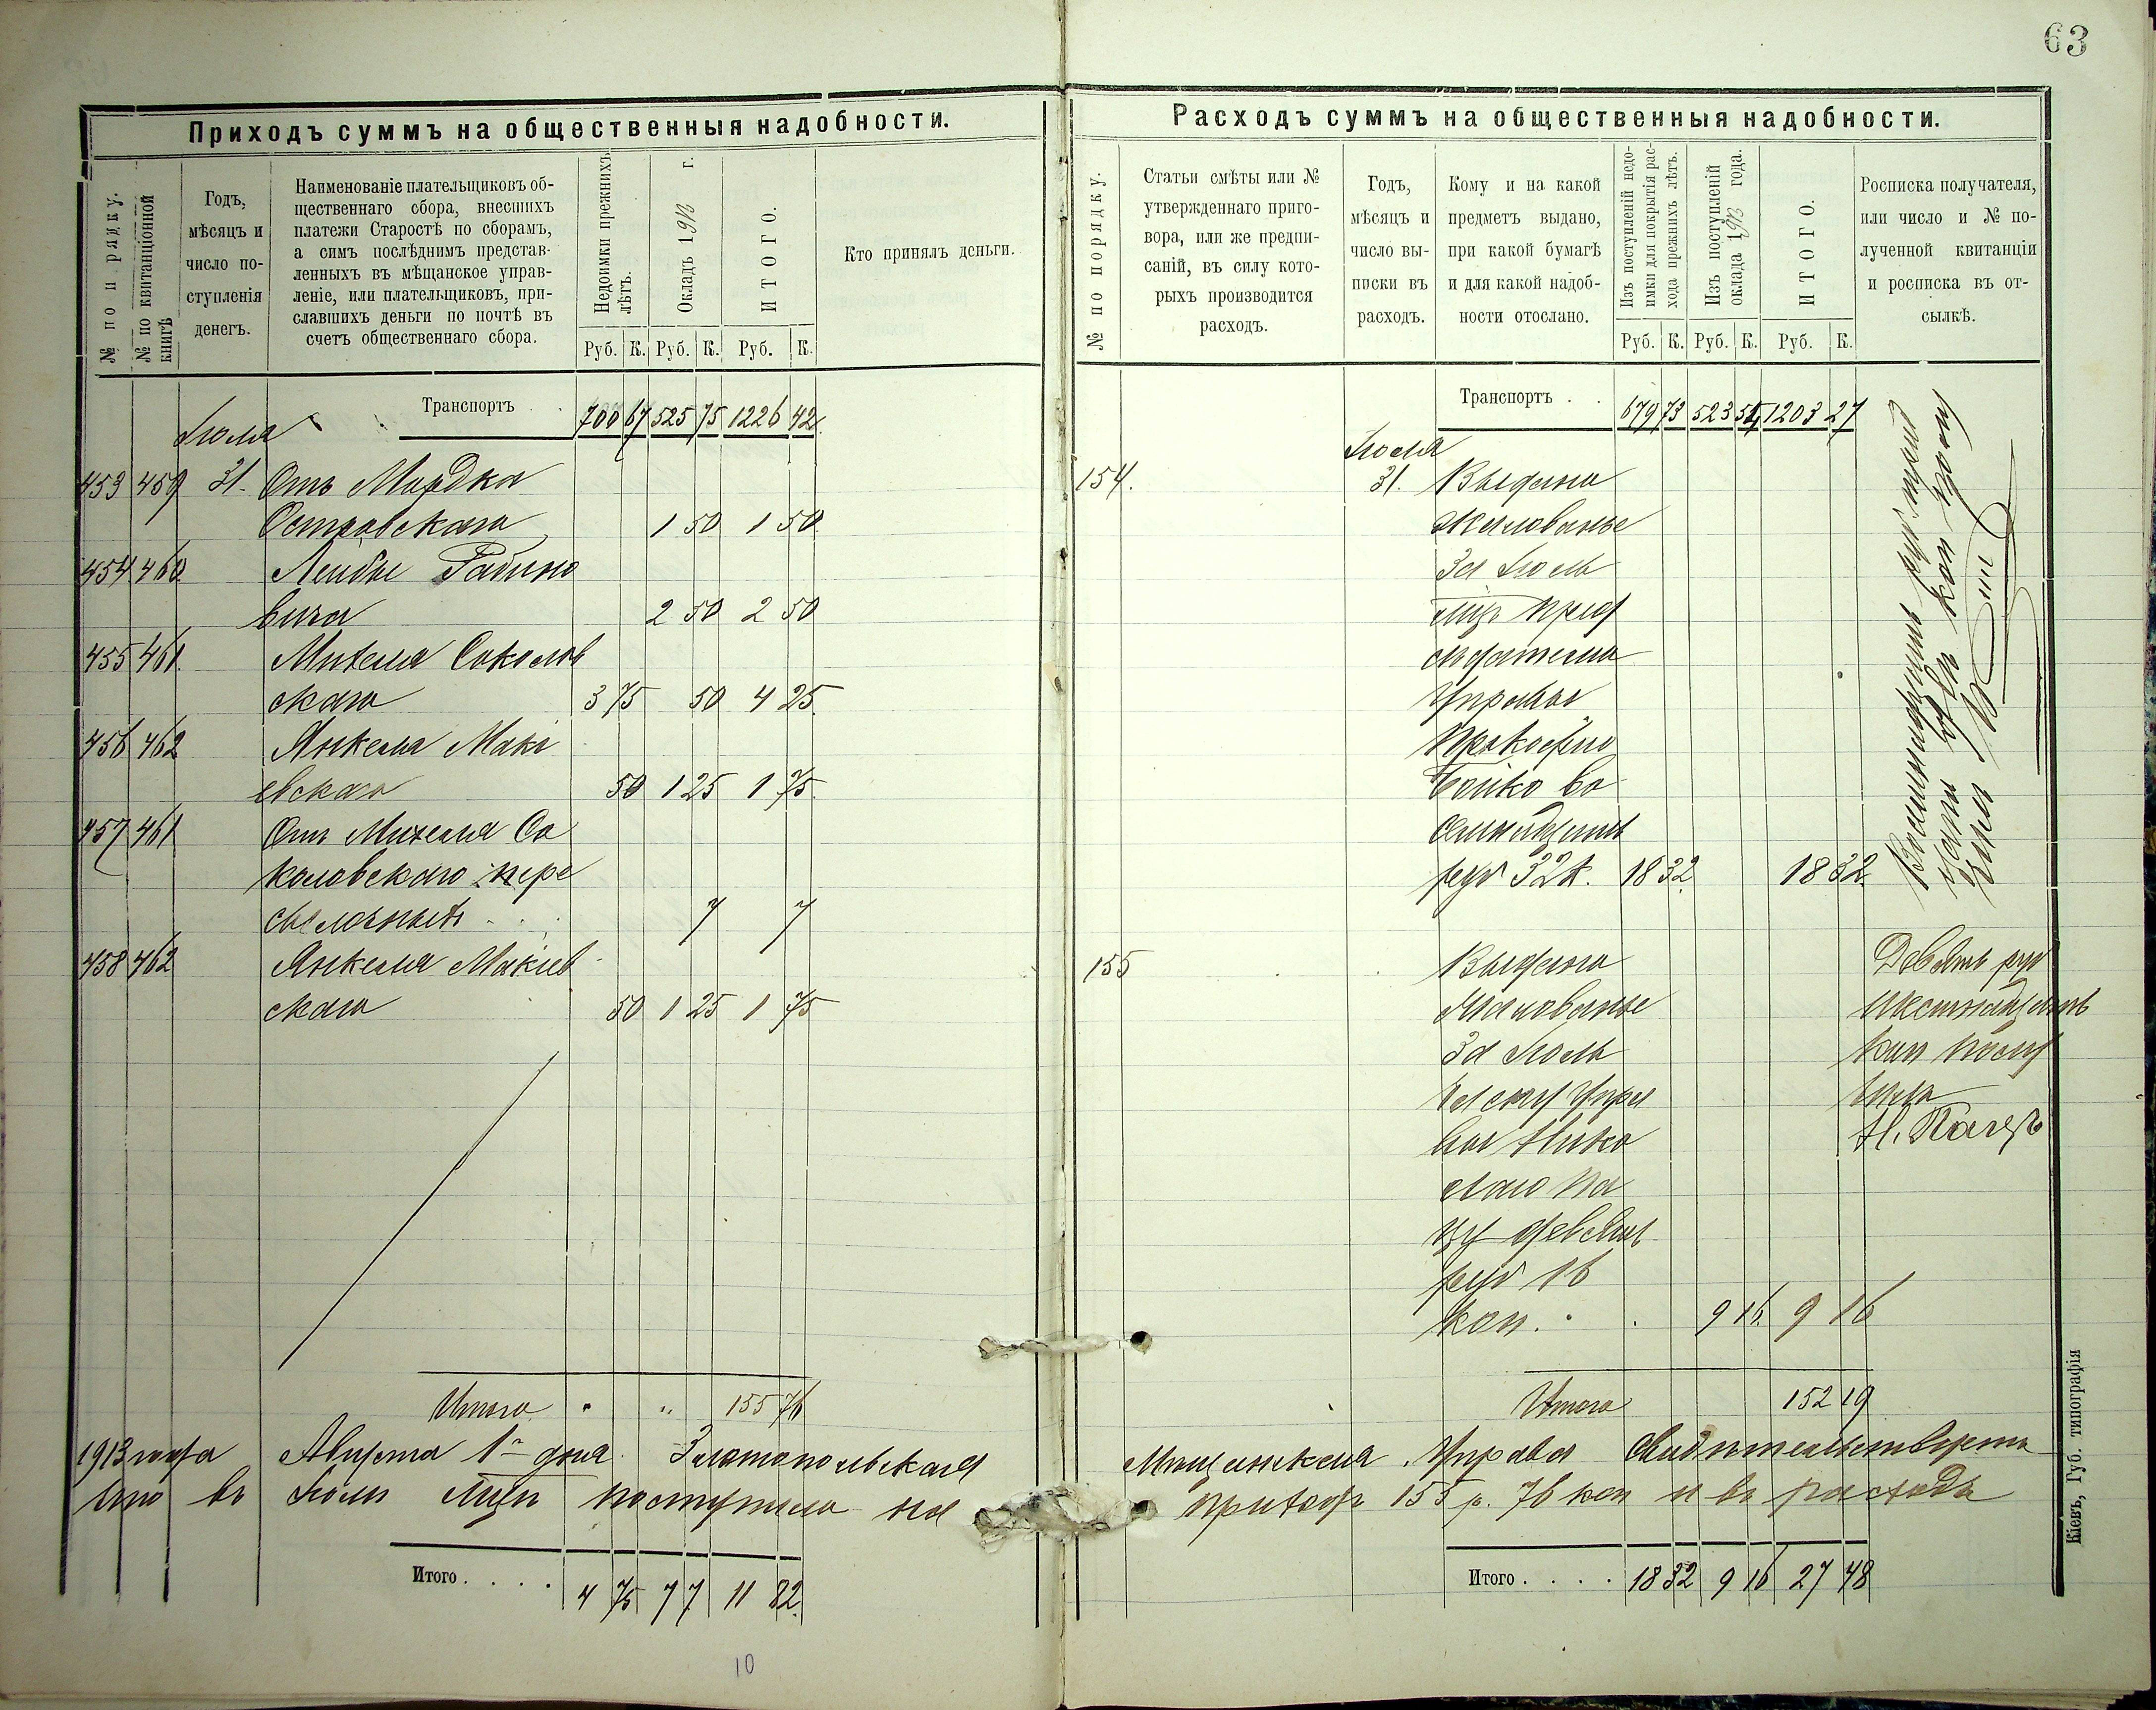 63
Приходъ суммъ на общественныя надобности.
№ по порядку.
№ по квитанціонной книгѣ
Годъ,
мѣсяцъ и
число по-
ступленія
денегъ.
Наименованіе плательщиковъ об-
щественнаго сбора, внесшихъ
платежи Старостѣ по сборамъ,
а симъ послѣднимъ представ-
ленныхъ въ мѣщанское управ-
леніе, или плательщиковъ, при-
славшихъ деньги по почтѣ въ
счетъ общественнаго сбора.
Недоимки прежнихъ
лѣтъ.
Окладъ 1913 г.
ИТОГО.
Кто принялъ деньги.
Руб. К. Руб. К. Руб. К.
Транспортъ . . 700 67 525 75 1226 42
Іюля
453 459 31. Отъ Мордка
Островскаго 1 50 1 50
454 460 Лейбы Рабино
вича 2 50 2 50
455 461 Михеля Соколов
скаго 3 75 50 4 25
456 462 Янкеля Макі
евскаго 50 1 25 1 75
457 461 Отъ Михеля Со
коловскаго пере
сылочныхъ . . 7 7
458 462 Янкеля Макіев
скаго 50 1 25 1 75
Итого " " 155 76
1913 года Августа 1го дня. Златопольская
что въ Іюлѣ мцѣ поступило на
Итого . . . . 4 75 7 7 11 82
10
Расходъ суммъ на общественныя надобности.
№ по порядку.
Статьи смѣты или №
утвержденнаго приго-
вора, или же предпи-
саній, въ силу кото-
рыхъ производится
расходъ.
Годъ,
мѣсяцъ и
число вы-
писки въ
расходъ.
Кому и на какой
предметъ выдано,
при какой бумагѣ
и для какой надоб-
ности отослано.
Изъ поступленій недо-
имки для покрытія рас-
хода прежнихъ лѣтъ.
Изъ поступленій
оклада 1913 года.
ИТОГО.
Росписка получателя,
или число и № по-
лученной квитанціи
и росписка въ от-
сылкѣ.
Руб. К. Руб. К. Руб. К.
Транспортъ . . 679 73 523 54 1203 27
Іюля
154. 31. Выдано
жалованье
за Іюль
мцъ пред
сѣдателю
Управы
Прокофію
Бойко во
семнадцать
руб 32 к. 18 32 18 32
Восемнадцать руб тридцать
155 Выдано
жалованье
за Іюль
Упра
вы Нико
лаю Па
цу девять
руб 16
коп. . . 9 16 9 16
Девять руб
шестнадцать
коп полу
чилъ
Н. Пацъ
Итого 152 19
Мѣщанская Управа свидѣтельствуетъ
приходъ 155 р. 76 коп и въ расходъ
Итого . . . . 18 32 9 16 27 48
Кіевъ, Губ. типографія